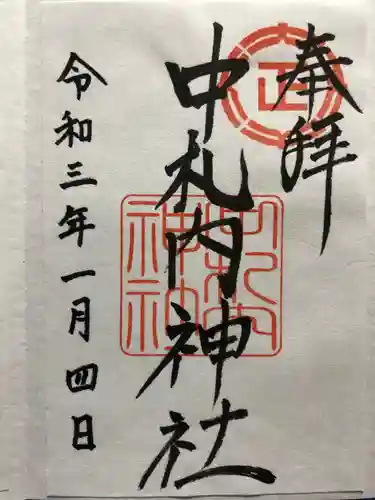 奉拝
中札内神社
令和三年一月四日
中札内
神社